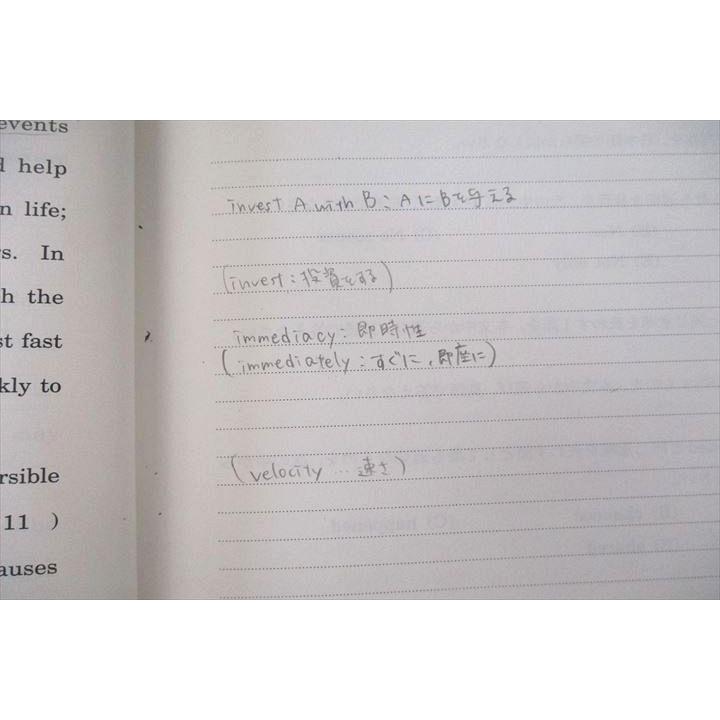 events
help
n life;
s. In
h the
st fast
kly to
rsible
11 )
auses
invest A with B : AにBを与える
(invest : 投資をする)
immediacy : 即時性
(immediately : すぐに, 即座に)
(velocity … 速さ)